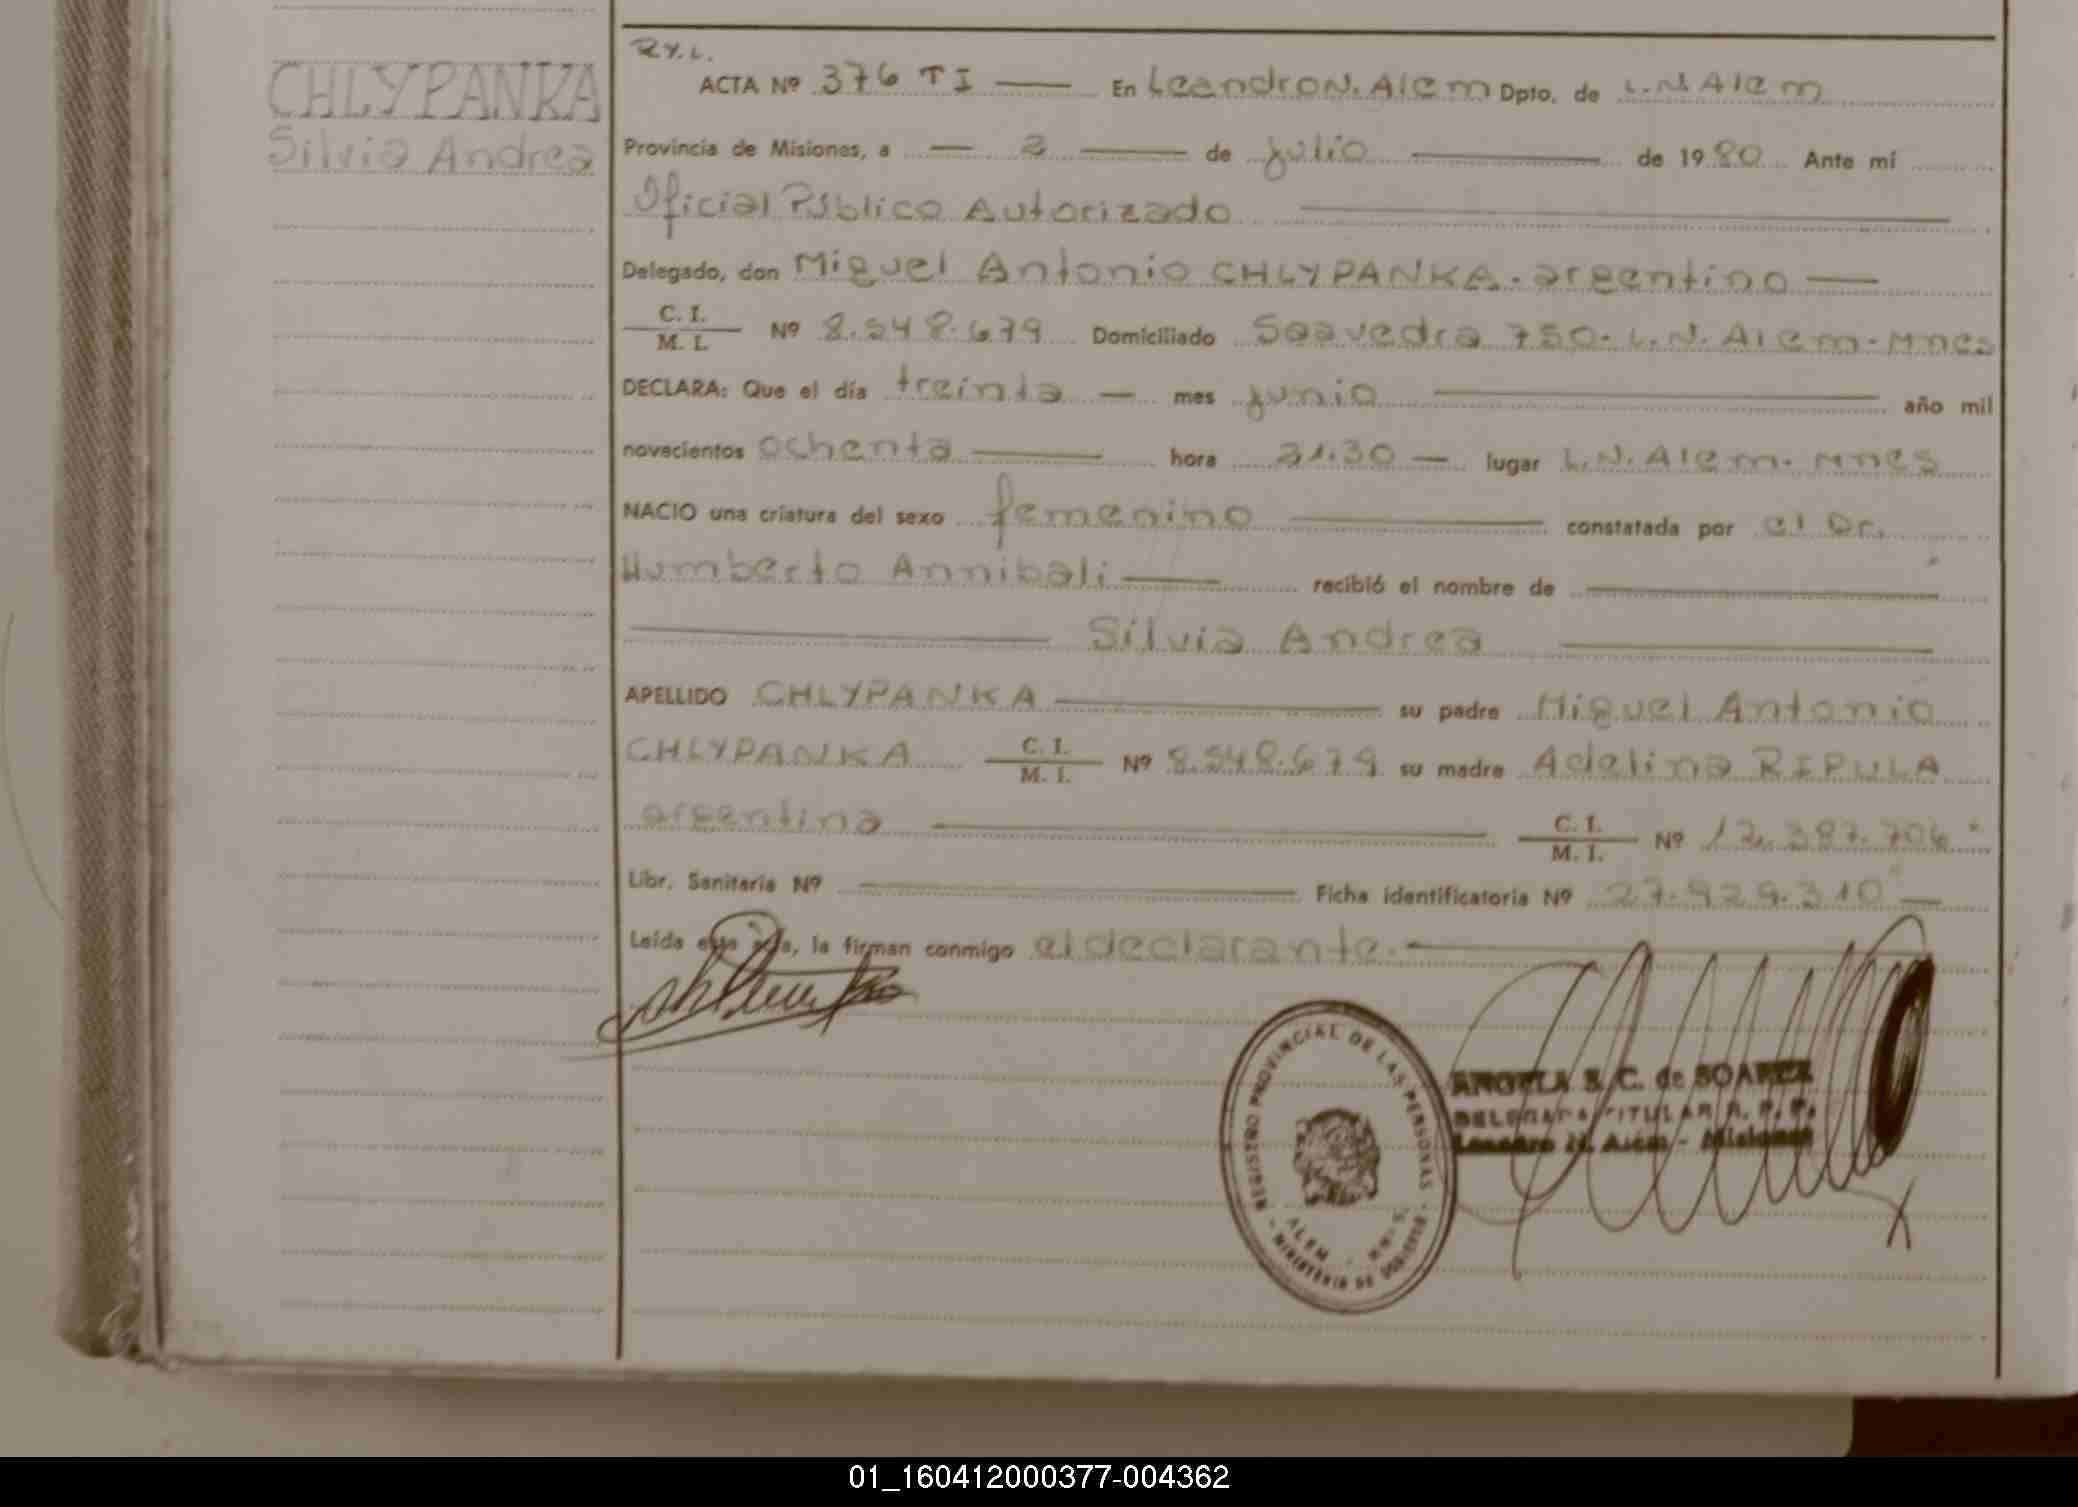 CHLYPANKA
Silvia Andrea
R.Y.L.
ACTA Nº 376 T I En Leandro N. Alem Dpto. de L.N Alem
Provincia de Misiones, a 2 de julio de 1980 Ante mí
Oficial Público Autorizado
Delegado, don Miguel Antonio CHLYPANKA. argentino
C. I. / M. I. Nº 8.548.679 Domiciliado Saavedra 750. L.N. Alem. Mnes
DECLARA: Que el día treinta mes junio año mil
novecientos ochenta hora 21.30 lugar L.N. Alem. Mnes
NACIO una criatura del sexo femenino constatada por el Dr.
Humberto Annibali recibió el nombre de
Silvia Andrea
APELLIDO CHLYPANKA su padre Miguel Antonio
CHLYPANKA C. I. / M. I. Nº 8.548.679 su madre Adelina RIPULA
argentina C. I. / M. I. Nº 12.387.706
Libr. Sanitaria Nº Ficha identificatoria Nº 27.929.310
Leída esta acta, la firman conmigo el declarante.
REGISTRO PROVINCIAL DE LAS PERSONAS
ALEM
MINISTERIO DE GOBIERNO
ANGELA S. C. de SOAREZ
DELEGADA TITULAR R. P. P.
Leandro N. Alem - Misiones
01_160412000377-004362